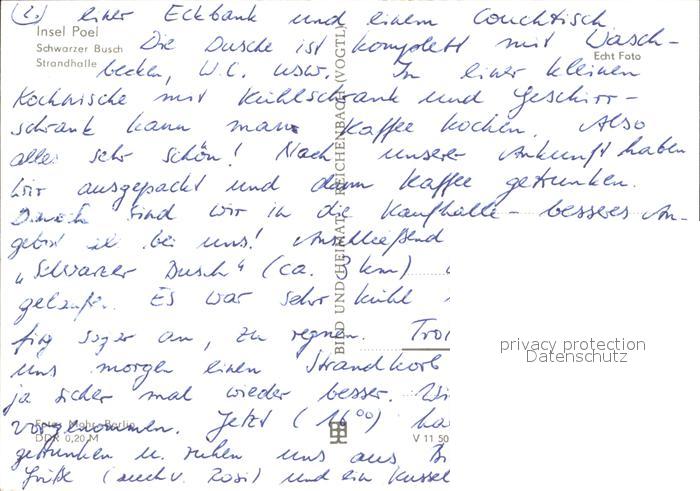 (2.) einer Eckbank und einem Couchtisch.
Insel Poel
Schwarzer Busch
Strandhalle
Die Dusche ist komplett mit Wasch-
Echt Foto
becken, W.C. usw. In einer kleinen
Kochnische mit Kühlschrank und Geschirr-
schrank kann man Kaffee kochen. Also
alles sehr schön! Nach unserer Ankunft haben
wir ausgepackt und dann Kaffee getrunken.
Danach sind wir in die Kaufhalle - besseres An-
gebot als bei uns! Anschließend
"Schwarzer Busch" (ca. 3 km)
gelaufen. Es war sehr kühl
fing sogar an, zu regnen.
uns morgen einen Strandkorb
ja sicher mal wieder besser.
vorgenommen. Jetzt (16°°)
getrunken u. ruhen uns aus
Grüße (auch v. Rosi) und ein Kussel
BILD UND HEIMAT REICHENBACH (VOGTL)
Foto: Mohr, Berlin
DDR 0,20 M
V 11 50
privacy protection
Datenschutz